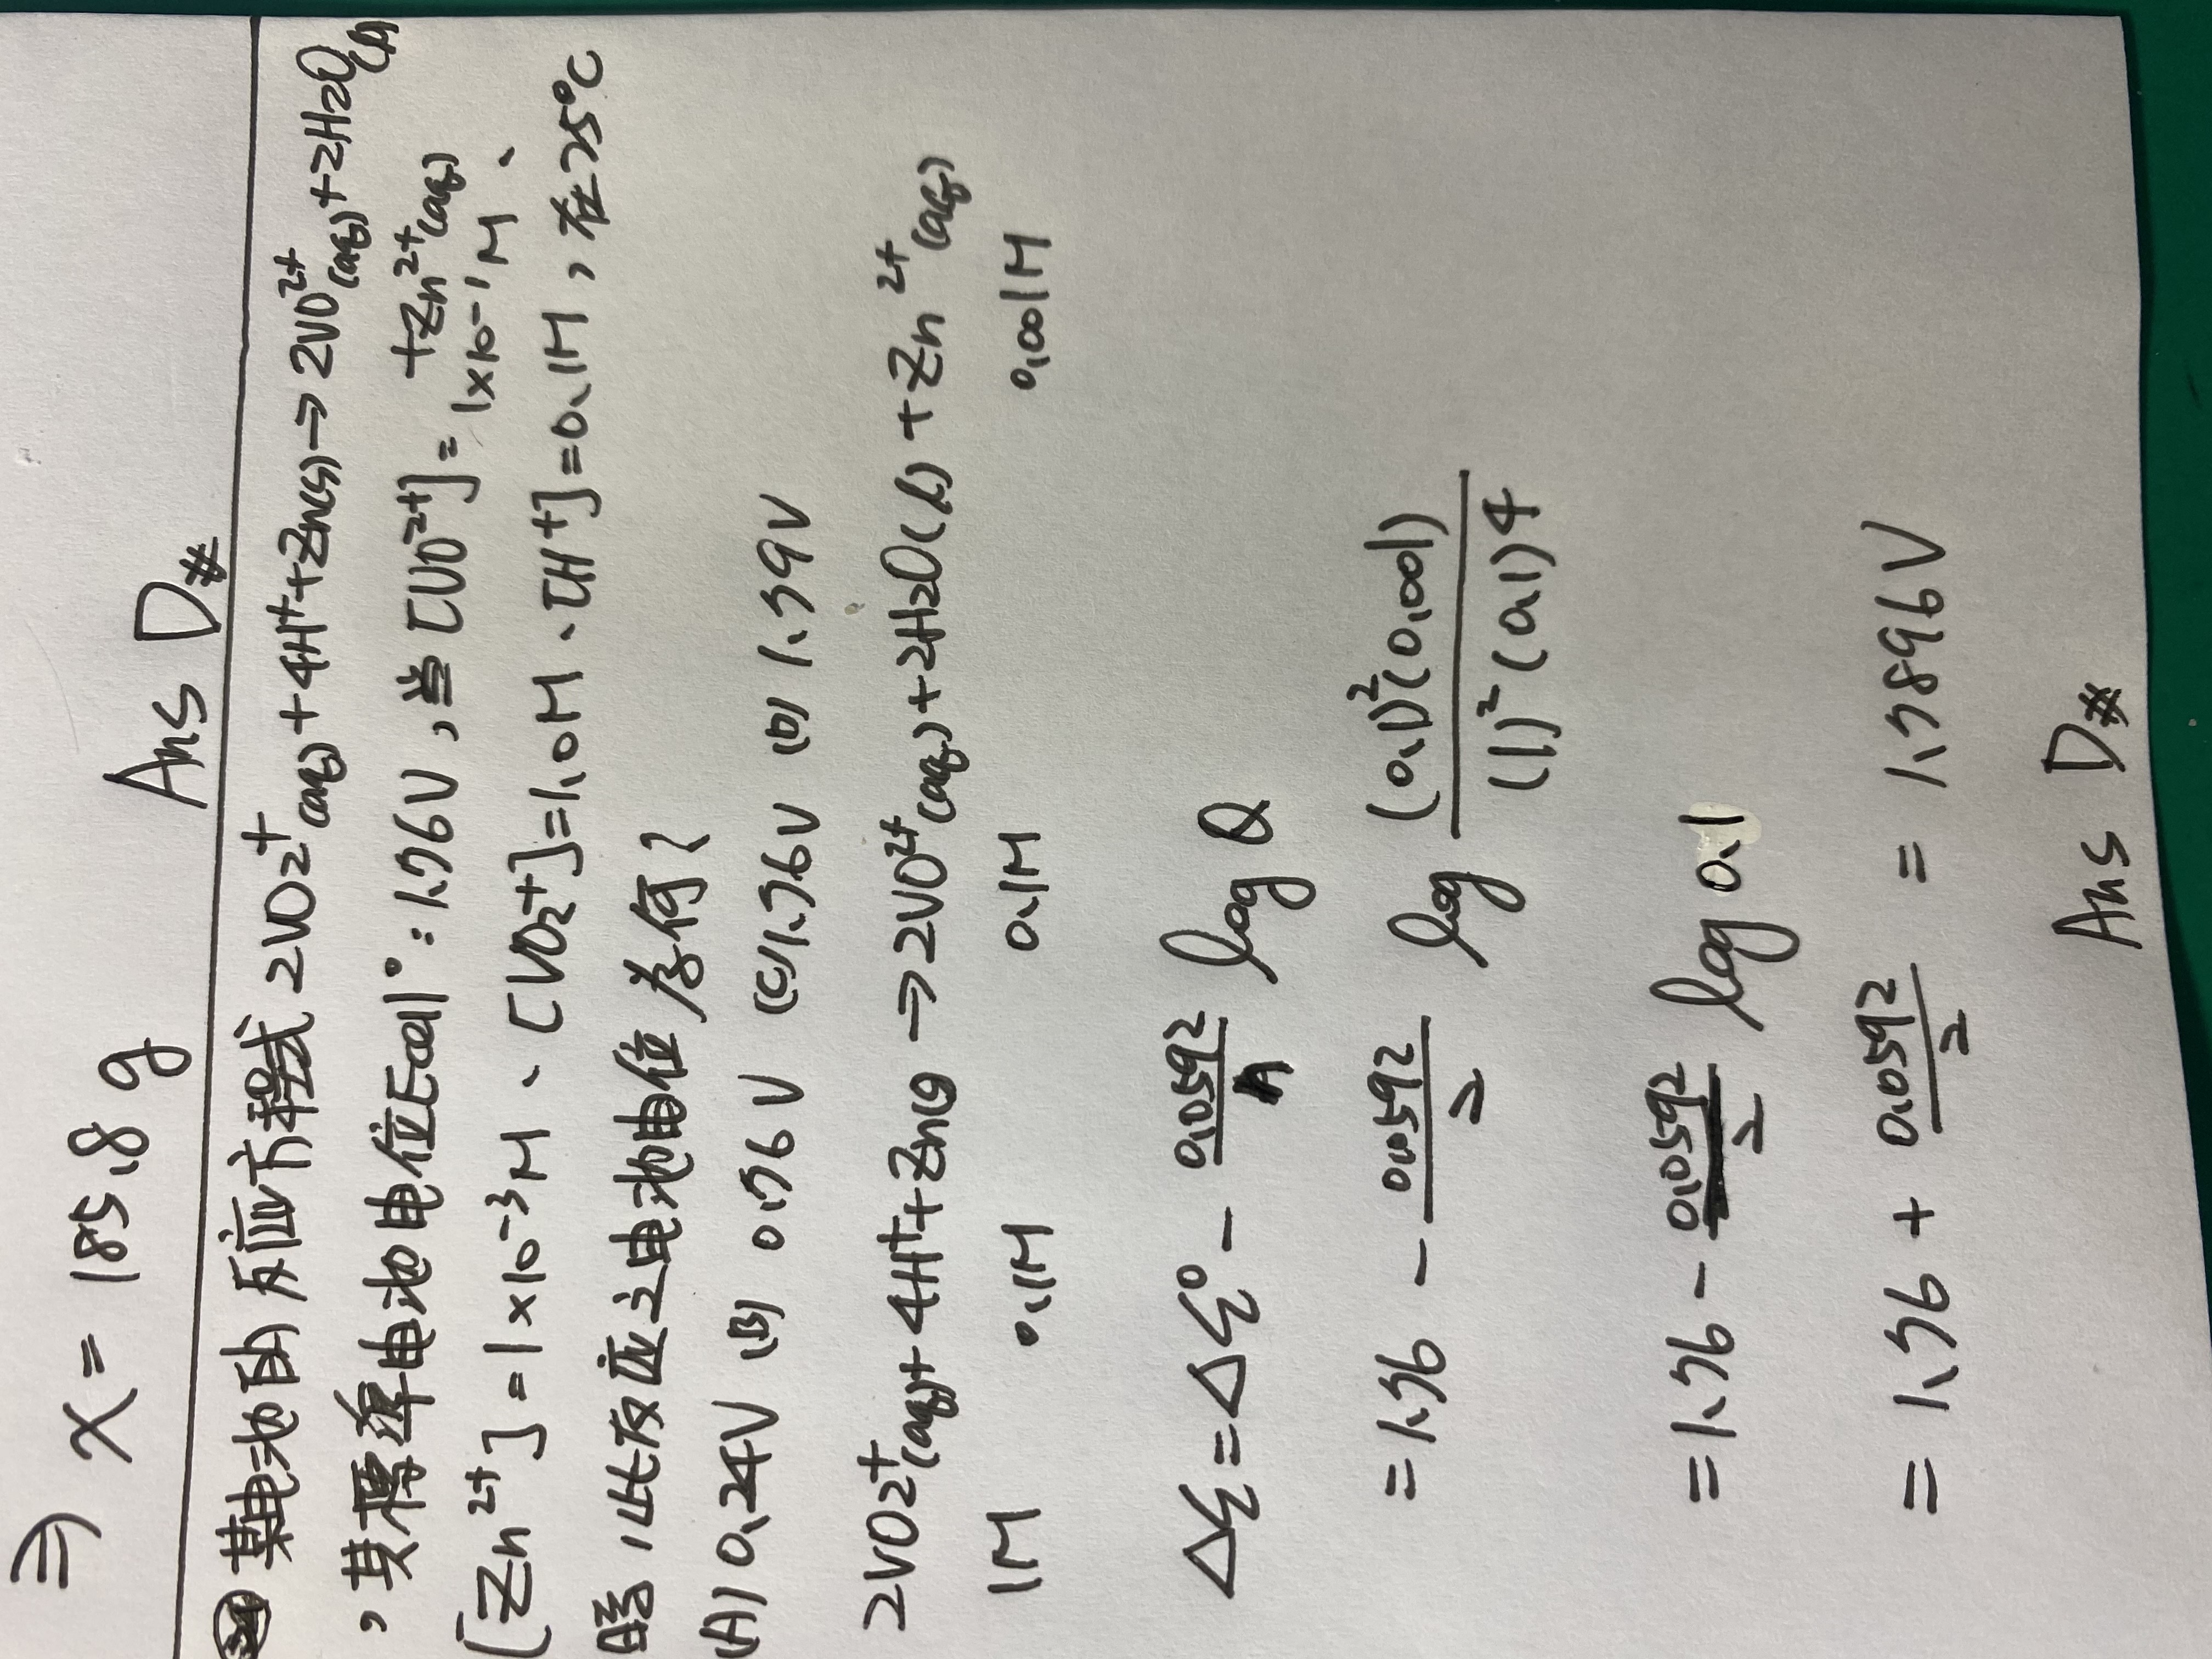 ⇒ x = 185.8 g
Ans D#
某電池的反应方程式 2VO2⁺(aq) + 4H⁺ + Zn(s) → 2VO²⁺(aq) + 2H2O(l)
+ Zn²⁺(aq)
,其標準電池電位Ecell°:1.76V,当[VO²⁺] = 1×10⁻¹M、
[Zn²⁺] = 1×10⁻³M、[VO2⁺] = 1.0M、[H⁺] = 0.1M,在25°C
時,此反应之電池電位为何?
(A) 0.24V (B) 0.76V (C) 1.76V (D) 1.79V
2VO2⁺(aq) + 4H⁺ + Zn(s) → 2VO²⁺(aq) + 2H2O(l) + Zn²⁺(aq)
1M 0.1M 0.1M 0.001M
Δε = Δε° - 0.0592/n log Q
= 1.76 - 0.0592/2 log (0.1)²(0.001)/(1)²(0.1)4
= 1.76 - 0.0592/2 log 0.1
= 1.76 + 0.0592/2 = 1.7896V
Ans D#